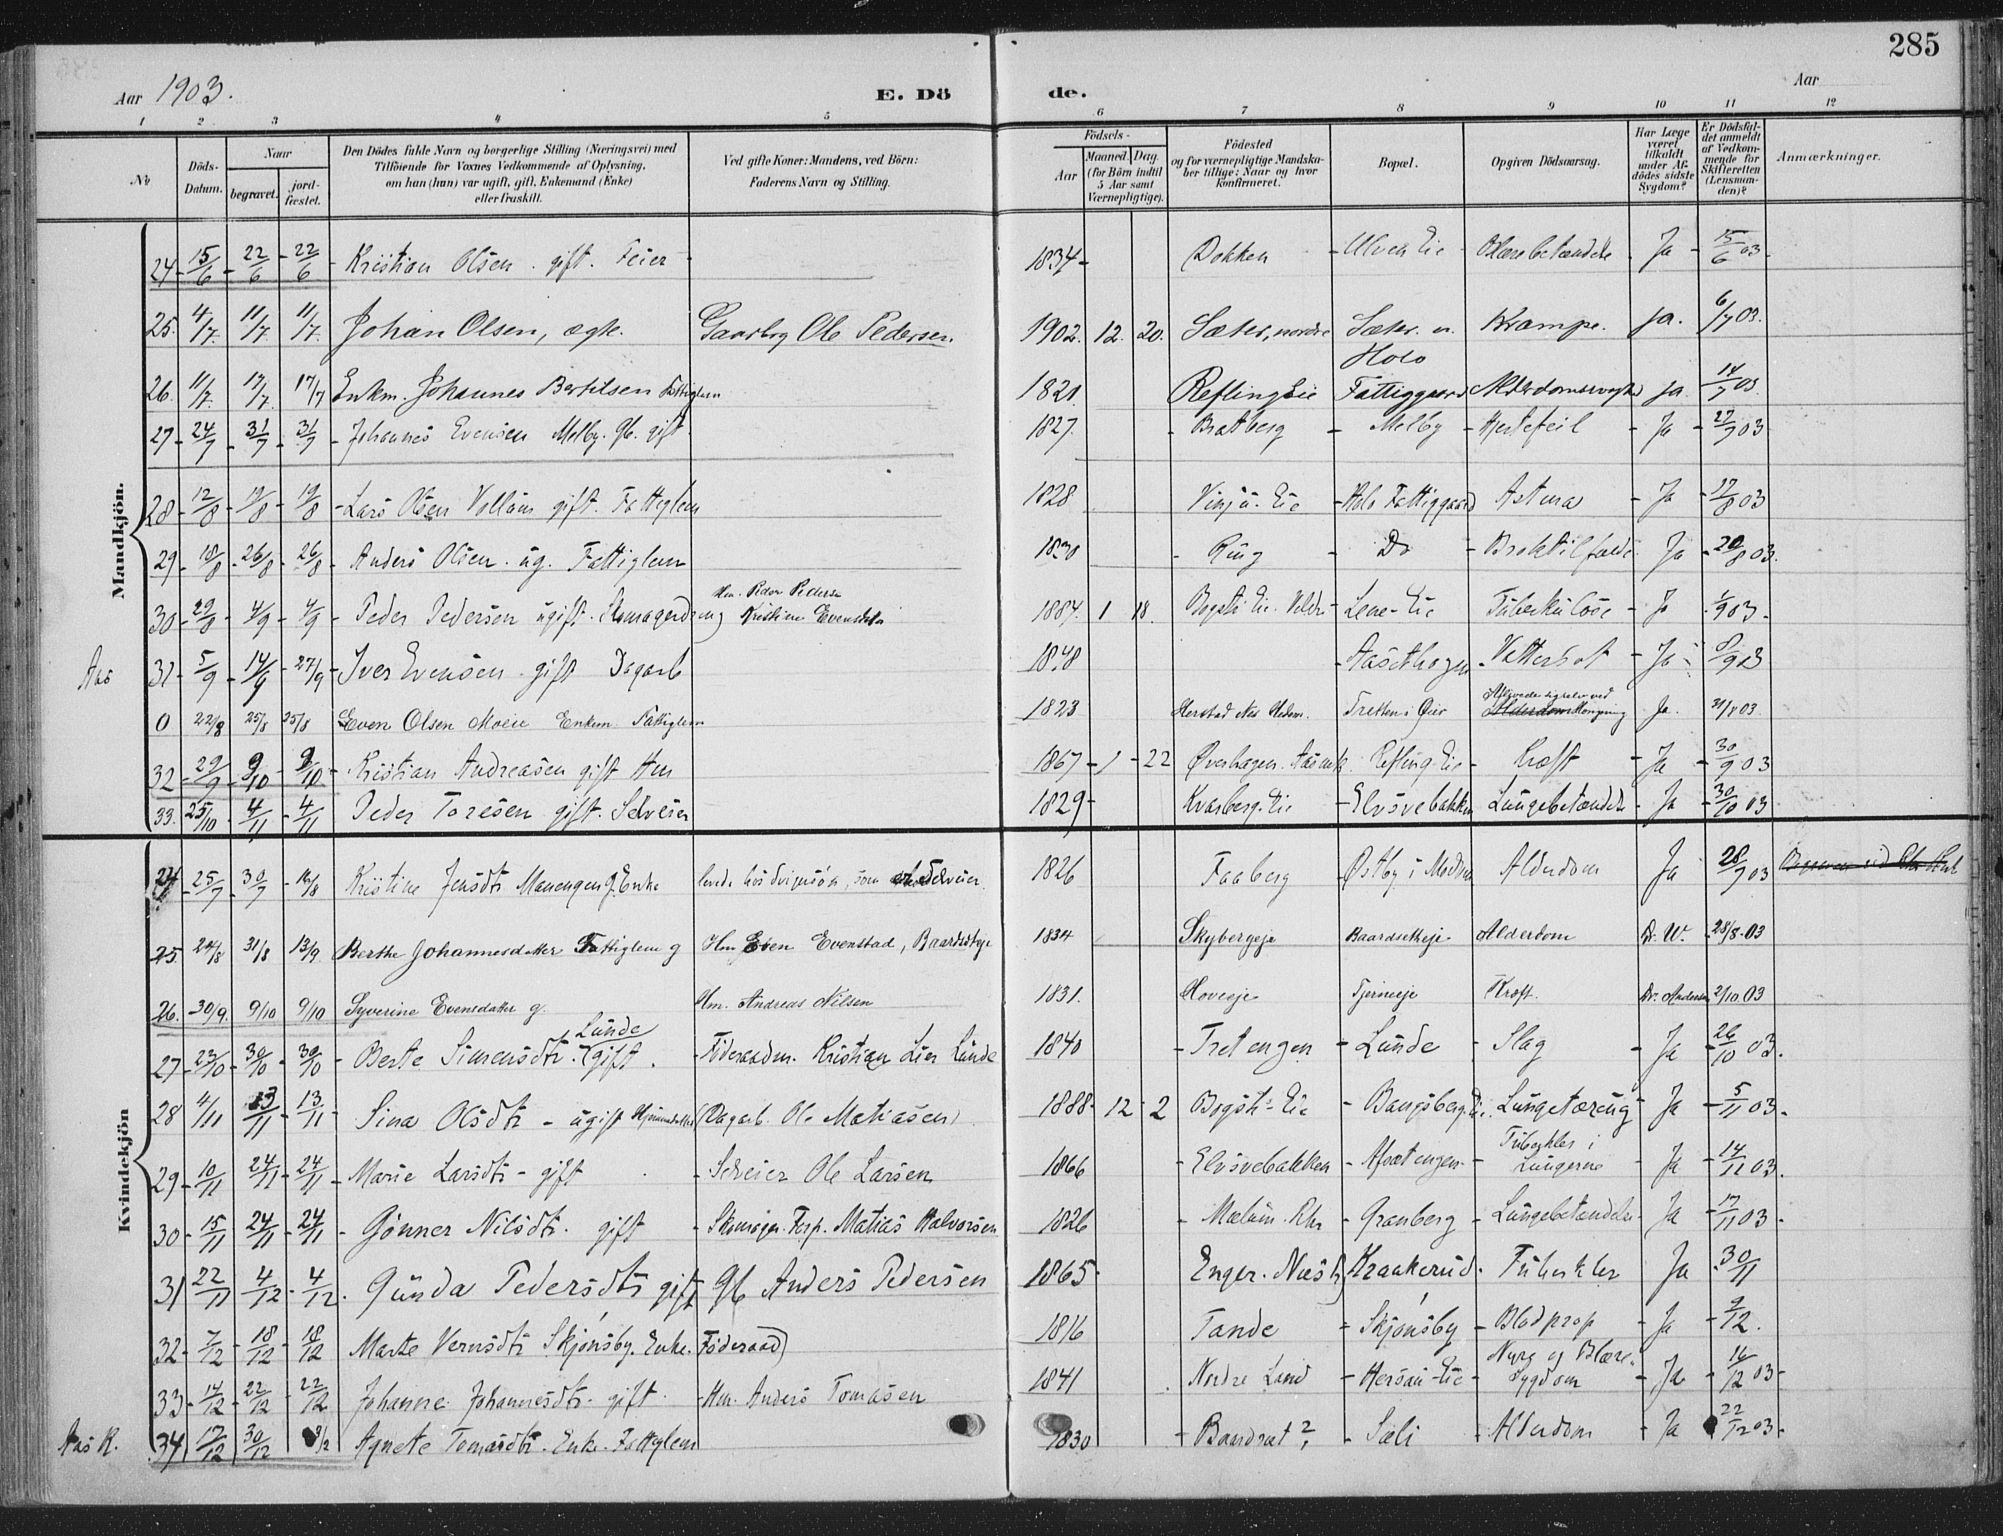 285
Aar 1903.
E. Dö de.
Aar
1 2 3 4 5 6 7 8 9 10 11 12
No
Döds-Datum.
Naar
begravet.
jord-fæstet.
Den Dödes fulde Navn og borgerlige Stilling (Næringsvei) med
Tilföiende for Voxnes Vedkommende af Oplysning,
om han (hun) var ugift, gift, Enkemand (Enke)
eller fraskilt.
Ved gifte Koner: Mandens, ved Börn:
Faderens Navn og Stilling.
Födsels-
Aar
Maaned. Dag.
(for Börn indtil 5 Aar samt Værnepligtige).
Födested
og for værnepligtige Mandska-
ber tillige: Naar og hvor
konfirmeret.
Bopæl.
Opgiven Dödsaarsag.
Har Læge været tilkaldt under Af-dödes sidste Sygdom?
Er Dödsfal-det anmeldt af Vedkom-mende for Skifteretten (Lensman-den)?
Anmærkninger.
Mandkjön.
24 - 15/6 - 22/6 - 22/6 - Kristian Olsen. gift. Feier - 1834 - Dokken - Ulven Eie - Blærebetændelse - Ja - 15/6 03.
25. 4/7. 11/7. 11/7. Johan Olsen, ægte. Gaardbrg Ole Pedersen. 1902. 12. 20. Sæter, nordre Sæter. n. Krampe. ja. 6/7 03.
26. 11/7. 17/7. 17/7 Enkm. Johannes Bertilsen Fattiglem 1821. Reflingeie Holo Fattiggaard Alderdomssvaghed ja 14/7 03.
27 - 24/7 - 31/7 - 31/7 - Johannes Evensen Melby. Gb. gift. 1827. - Bratberg - Melby - Hjertefeil - Ja - 27/7 03
28 - 12/8 - 19/8 - 19/8 - Lars Olsen Vollum gift. Fattiglem 1828 Vinju-Eie - Holo Fattiggaard Astma - Ja - 17/8 03
29 - 18/8 - 26/8 - 26/8 - Anders Olsen. ug. Fattiglem 1830 - Ring - Do - Broktilfælde. Ja - 20/8 03.
30 - 29/8 - 4/9 - 4/9 - Peder Pedersen ugift. Skomagerdreng Hm. Peder Pedersen Kristine Evensdatter 1884. 1 18. Bogsti Eie. Veldre - Lene-Eie Tuberkulose - Ja 1/9 03 -
Aas 31 - 5/9 - 14/9 - 27/9 - Iver Evensen. gift Dagarb 1848 - Aasethogen - Vattersot - Ja - 8/9 03
0 22/8 25/8 25/8 Even Olsen Moeie Enkem. Fattiglem 1823 Herstad Nes Hedem. Tretten i Øier Alderdom Ja.
32 - 29/9 - 9/10 - 9/10 - Kristian Andreasen gift Hm 1867 - 1 - 22 Øverhagen. Refling Eie - Kræft - Ja - 30/9 03
33. 25/10 - 4/11 - 4/11 - Peder Toresen gift. Selveier 1829 - Kvarberg. Eie - Elvsvebakken Lungebetændelse - Ja - 30/10 03
Kvindekjön
24 - 25/7 - 30/7 - 16/8 Kristine Jensdtr Manengen g. Enke 1826 Faaberg - Østby i Alderdom Ja 28/7 03
25 24/8 31/8 13/9 Berthe Johannesdatter Fattiglem g Hm Even Evenstad, 1834 Skybergeje Baardsetheje Alderdom Dr. W. 28/8. 03
26. 30/9. 9/10 9/10 Syverine Evensdatter g. Hm. Andreas Nilsen 1831. Hoveeje Tjerneeje Kræft. Dr. Andersen 2/10 03
27 - 23/10 - 30/10 - 30/10 - Berte Simensdtr. Lunde gift. - Føderaadm. Kristian Lunde 1840 - Tretengen - Lunde - Slag - Ja - 26/10 03.
28 4/11 13/11 - 13/11 - Sina Olsdtr - ugift (Dagarb. Ole Matiasen) 1888 - 12 - 2 Bogsti-Eie - Bangsberg. Eie. Lungetæring - Ja - 5/11 03 -
29 - 10/11 24/11 - 24/11 - Marie Larsdtr - gift - Selveier Ole Larsen 1866 - Elvsvebakken - Afsætengen - Tuberkler i Lungerne - Ja - 14/11 03.
30 - 15/11 24/11 - 24/11 - Gønner Nilsdtr. gift - Matias Halvorsen 1826 - Mælum. Rhr - Granberg - Lungebetændelse - Ja - 17/11 03 -
31 22/11 4/12 - 4/12. Gunda Pedersdtr gift Gb Anders Pedersen 1865. Enger. Næsk) Kraakerud - Tuberkler Ja 30/11
32 - 7/12 - 18/12 - 18/12 Marte Skjønsby. Enke. Føderaad) 1816 Tande - Skjønsby - Blodprop - Ja - 9/12.
33 - 14/12 - 22/12 - 22/12 Johanne Johannesdtr. gift. - Hm. Anders Tomasen 1841 Nordre Land - Eie - Nyre og Blære-sygdom - Ja - 16/12 03 -
Aas K. 34 17/12 30/12 Agnete Tomasdtr. Enke. Fattiglem 1830 - ? - Sæli - Alderdom - Ja 22/12 03 -